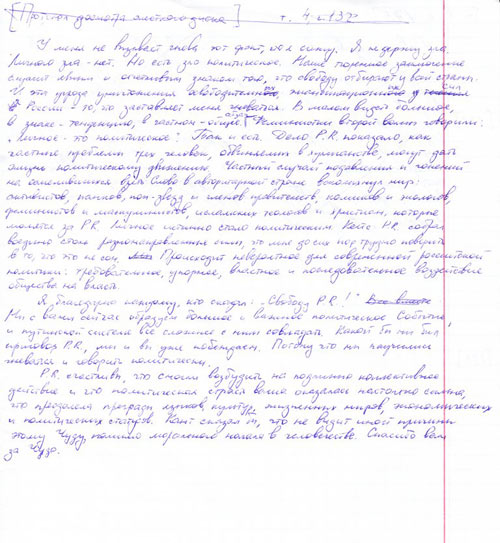 [Протокол досмотра жёсткого диска] т. 4, л. 137
У меня не вызывает гнева тот факт, что я сижу. Я не держу зла.
Личного зла - нет. Но есть зло политическое. Наше тюремное заключение
служит явным и отчетливым знаком того, что свободу отбирают у всей страны.
И эта угроза уничтожения освободительных, эмансипационных сил
России - то, что заставляет меня гневаться. В малом видеть большое,
в знаке - тенденцию, в частном - общее. Феминистки второй волны говорили:
"Личное - это политическое". Так и есть. Дело P.R. показало, как
частные проблемы трех человек, обвиняемых в хулиганстве, могут дать
жизнь политическому движению. Частный случай подавления и гонений
на осмелившихся взять слово в авторитарной стране всколыхнул мир:
активистов, панков, поп-звезд и членов правительств, комиков и экологов,
феминистов и маскулинистов, исламских теологов и христиан, которые
молятся за P.R. Личное истинно стало политическим. Кейс P.R. собрал
воедино столь разнонаправленные силы, что мне до сих пор трудно поверить
в то, что это не сон. Происходит невероятное для современной российской
политики: требовательное, упорное, властное и последовательное воздействие
общества на власть.
Я благодарна каждому, кто сказал: "Свободу P.R.!"
Мы с вами сейчас образуем большое и важное политическое Событие,
и путинской системе все сложнее с ним совладать. Каков бы ни был
приговор P.R., мы и вы уже побеждаем. Потому что мы научились
гневаться и говорить политически.
P.R. счастливы, что смогли возбудить на подлинно коллективное
действие и что политическая страсть ваша оказалась настолько сильна,
что преодолела преграды языков, культур, жизненных миров, экономических
и политических статусов. Кант сказал бы, что не видит иной причины
этому Чуду, помимо морального начала в человечестве. Спасибо вам
за Чудо.